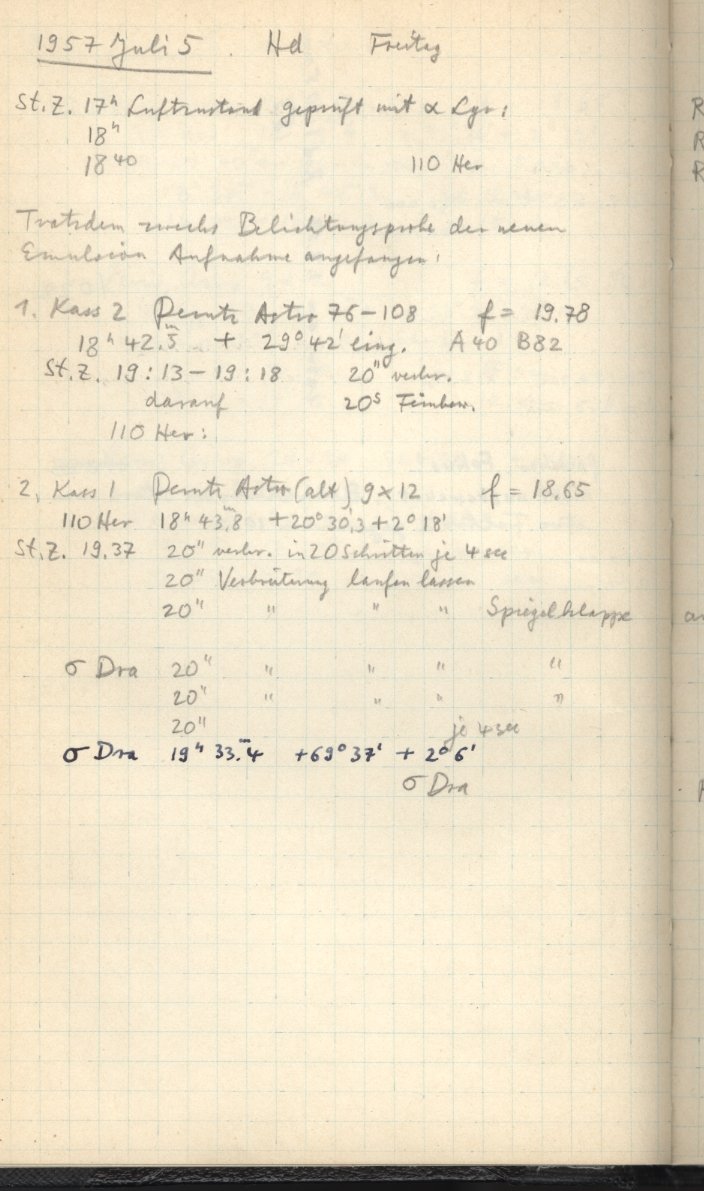 1957 Juli 5. Hd Freitag
St.Z. 17ʰ Luftzustand geprüft mit α Lyr:
18ʰ
18 40 110 Her
Trotzdem zwecks Belichtungsprobe der neuen
Emulsion Aufnahme angefangen:
1. Kass 2 Perutz Astro 76-108 f = 19.78
18ʰ 42.ᵐ5 + 29° 42' eing. A 40 B82
St.Z. 19:13-19:18 20" verbr.
darauf 20ˢ Feinbew.
110 Her:
2. Kass 1 Perutz Astro (alt) 9x12 f = 18.65
110 Her 18ʰ 43.ᵐ8 +20° 30,'3 + 2° 18'
St.Z. 19.37 20" verbr. in 20 Schritten je 4 sec
20" Verbreiterung laufen lassen
20" " " " Spiegelklappe
σ Dra 20" " " " "
20" " " " "
20" je 4 sec
σ Dra 19ʰ 33.ᵐ4 +69° 37' + 2° 6'
σ Dra